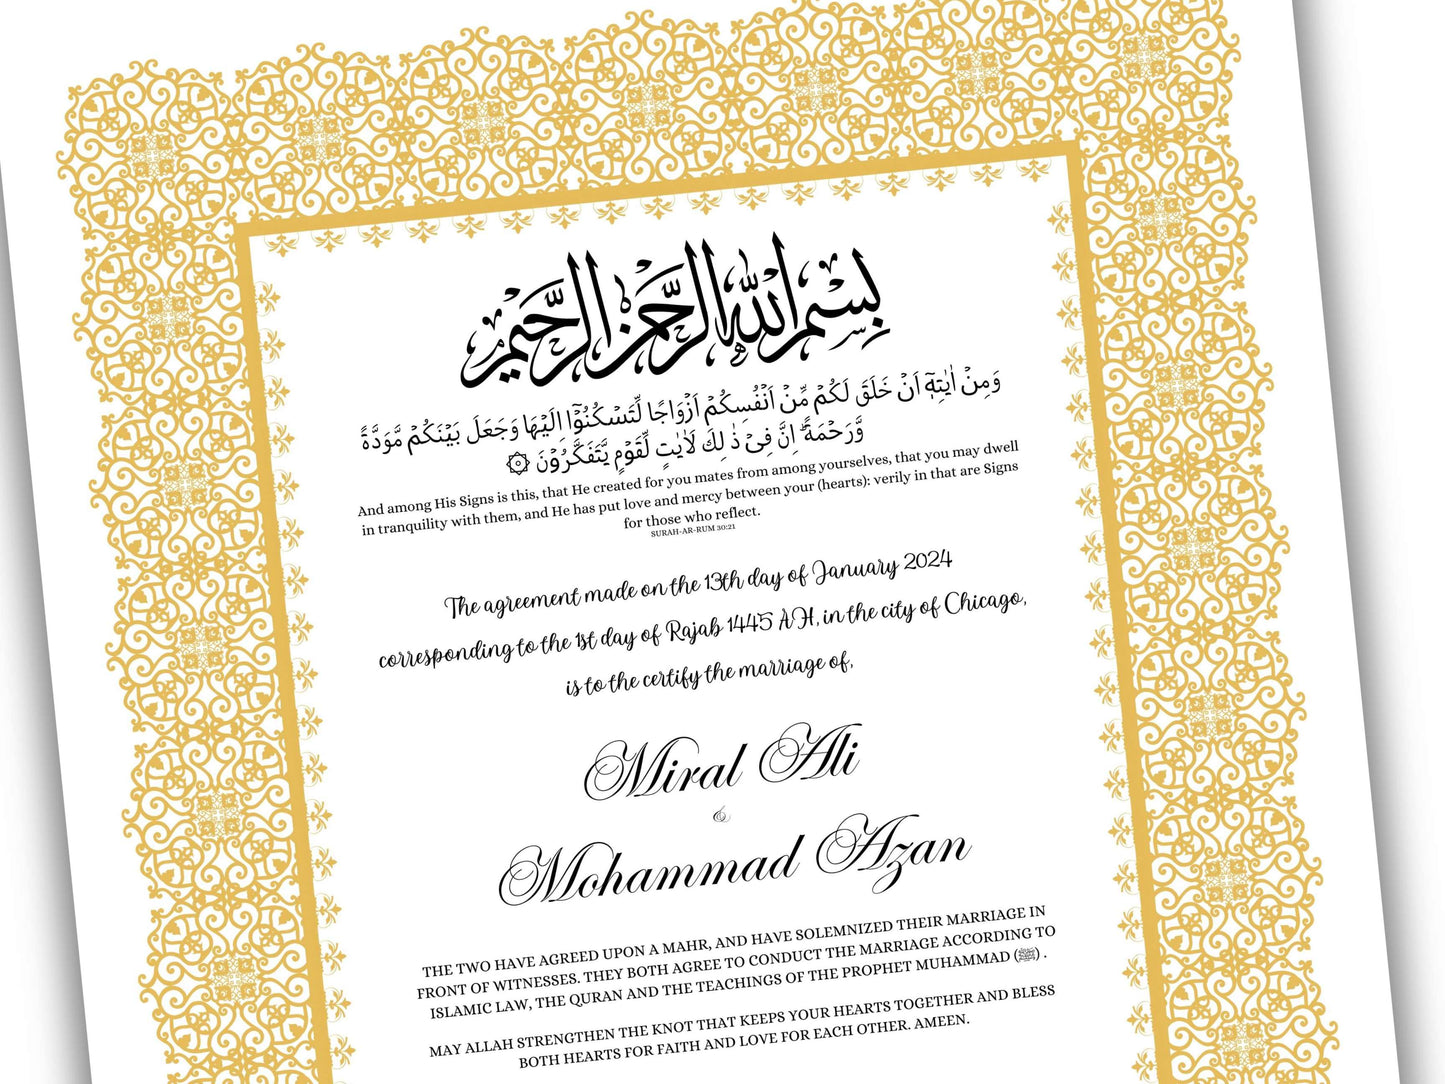 بِسْمِ اللهِ الرَّحْمٰنِ الرَّحِيْمِ
وَمِنْ اٰيٰتِهٖٓ اَنْ خَلَقَ لَكُمْ مِّنْ اَنْفُسِكُمْ اَزْوَاجًا لِّتَسْكُنُوْٓا اِلَيْهَا وَجَعَلَ بَيْنَكُمْ مَّوَدَّةً
وَّرَحْمَةً ؕ اِنَّ فِىْ ذٰ لِكَ لَاٰيٰتٍ لِّقَوْمٍ يَّتَفَكَّرُوْنَ ۞
And among His Signs is this, that He created for you mates from among yourselves, that you may dwell
in tranquility with them, and He has put love and mercy between your (hearts): verily in that are Signs
for those who reflect.
SURAH-AR-RUM 30:21
The agreement made on the 13th day of January 2024
corresponding to the 1st day of Rajab 1445 AH, in the city of Chicago,
is to the certify the marriage of,
Miral Ali
&
Mohammad Azan
THE TWO HAVE AGREED UPON A MAHR, AND HAVE SOLEMNIZED THEIR MARRIAGE IN
FRONT OF WITNESSES. THEY BOTH AGREE TO CONDUCT THE MARRIAGE ACCORDING TO
ISLAMIC LAW, THE QURAN AND THE TEACHINGS OF THE PROPHET MUHAMMAD (ﷺ) .
MAY ALLAH STRENGTHEN THE KNOT THAT KEEPS YOUR HEARTS TOGETHER AND BLESS
BOTH HEARTS FOR FAITH AND LOVE FOR EACH OTHER. AMEEN.